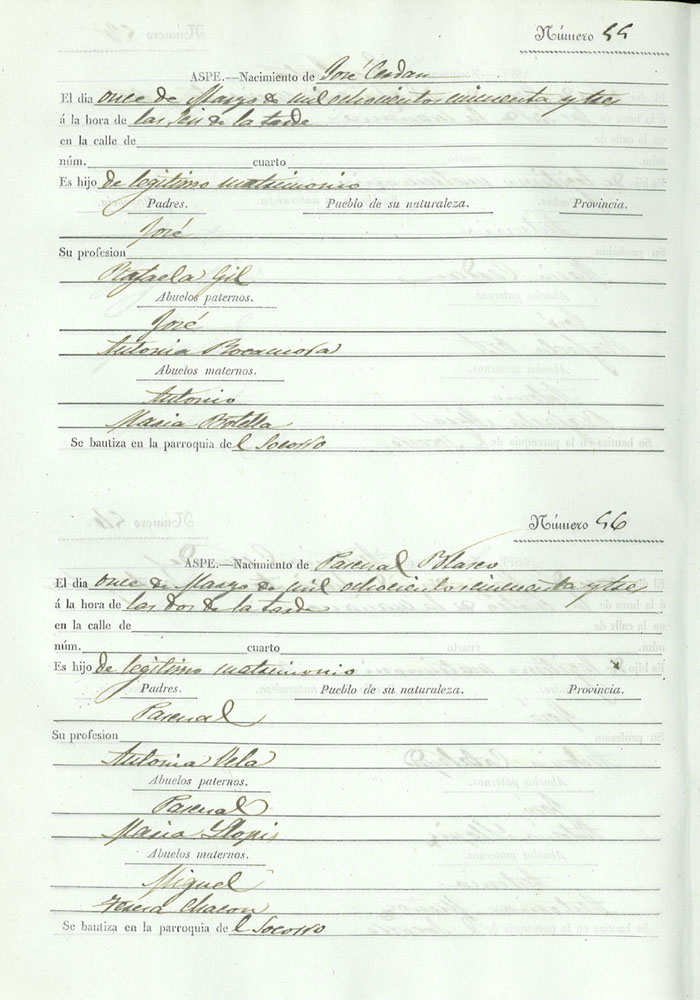 Número 55
ASPE.—Nacimiento de José Cerdan
El dia once de Marzo de mil ochocientos cincuenta y tres
á la hora de las seis de la tarde
en la calle de
núm. cuarto
Es hijo de legitimo matrimonio
Padres. Pueblo de su naturaleza. Provincia.
José
Su profesion
Rafaela Gil
Abuelos paternos.
José
Antonia Rocamora
Abuelos maternos.
Antonio
Maria Botella
Se bautiza en la parroquia de l Socorro
Número 56
ASPE.—Nacimiento de Pascual Blasco
El dia once de Marzo de mil ochocientos cincuenta y tres
á la hora de las dos de la tarde
en la calle de
núm. cuarto
Es hijo de legitimo matrimonio
Padres. Pueblo de su naturaleza. Provincia.
Pascual
Su profesion
Antonia Vela
Abuelos paternos.
Pascual
Maria Llopis
Abuelos maternos.
Miguel
Teresa Chacon
Se bautiza en la parroquia de l Socorro